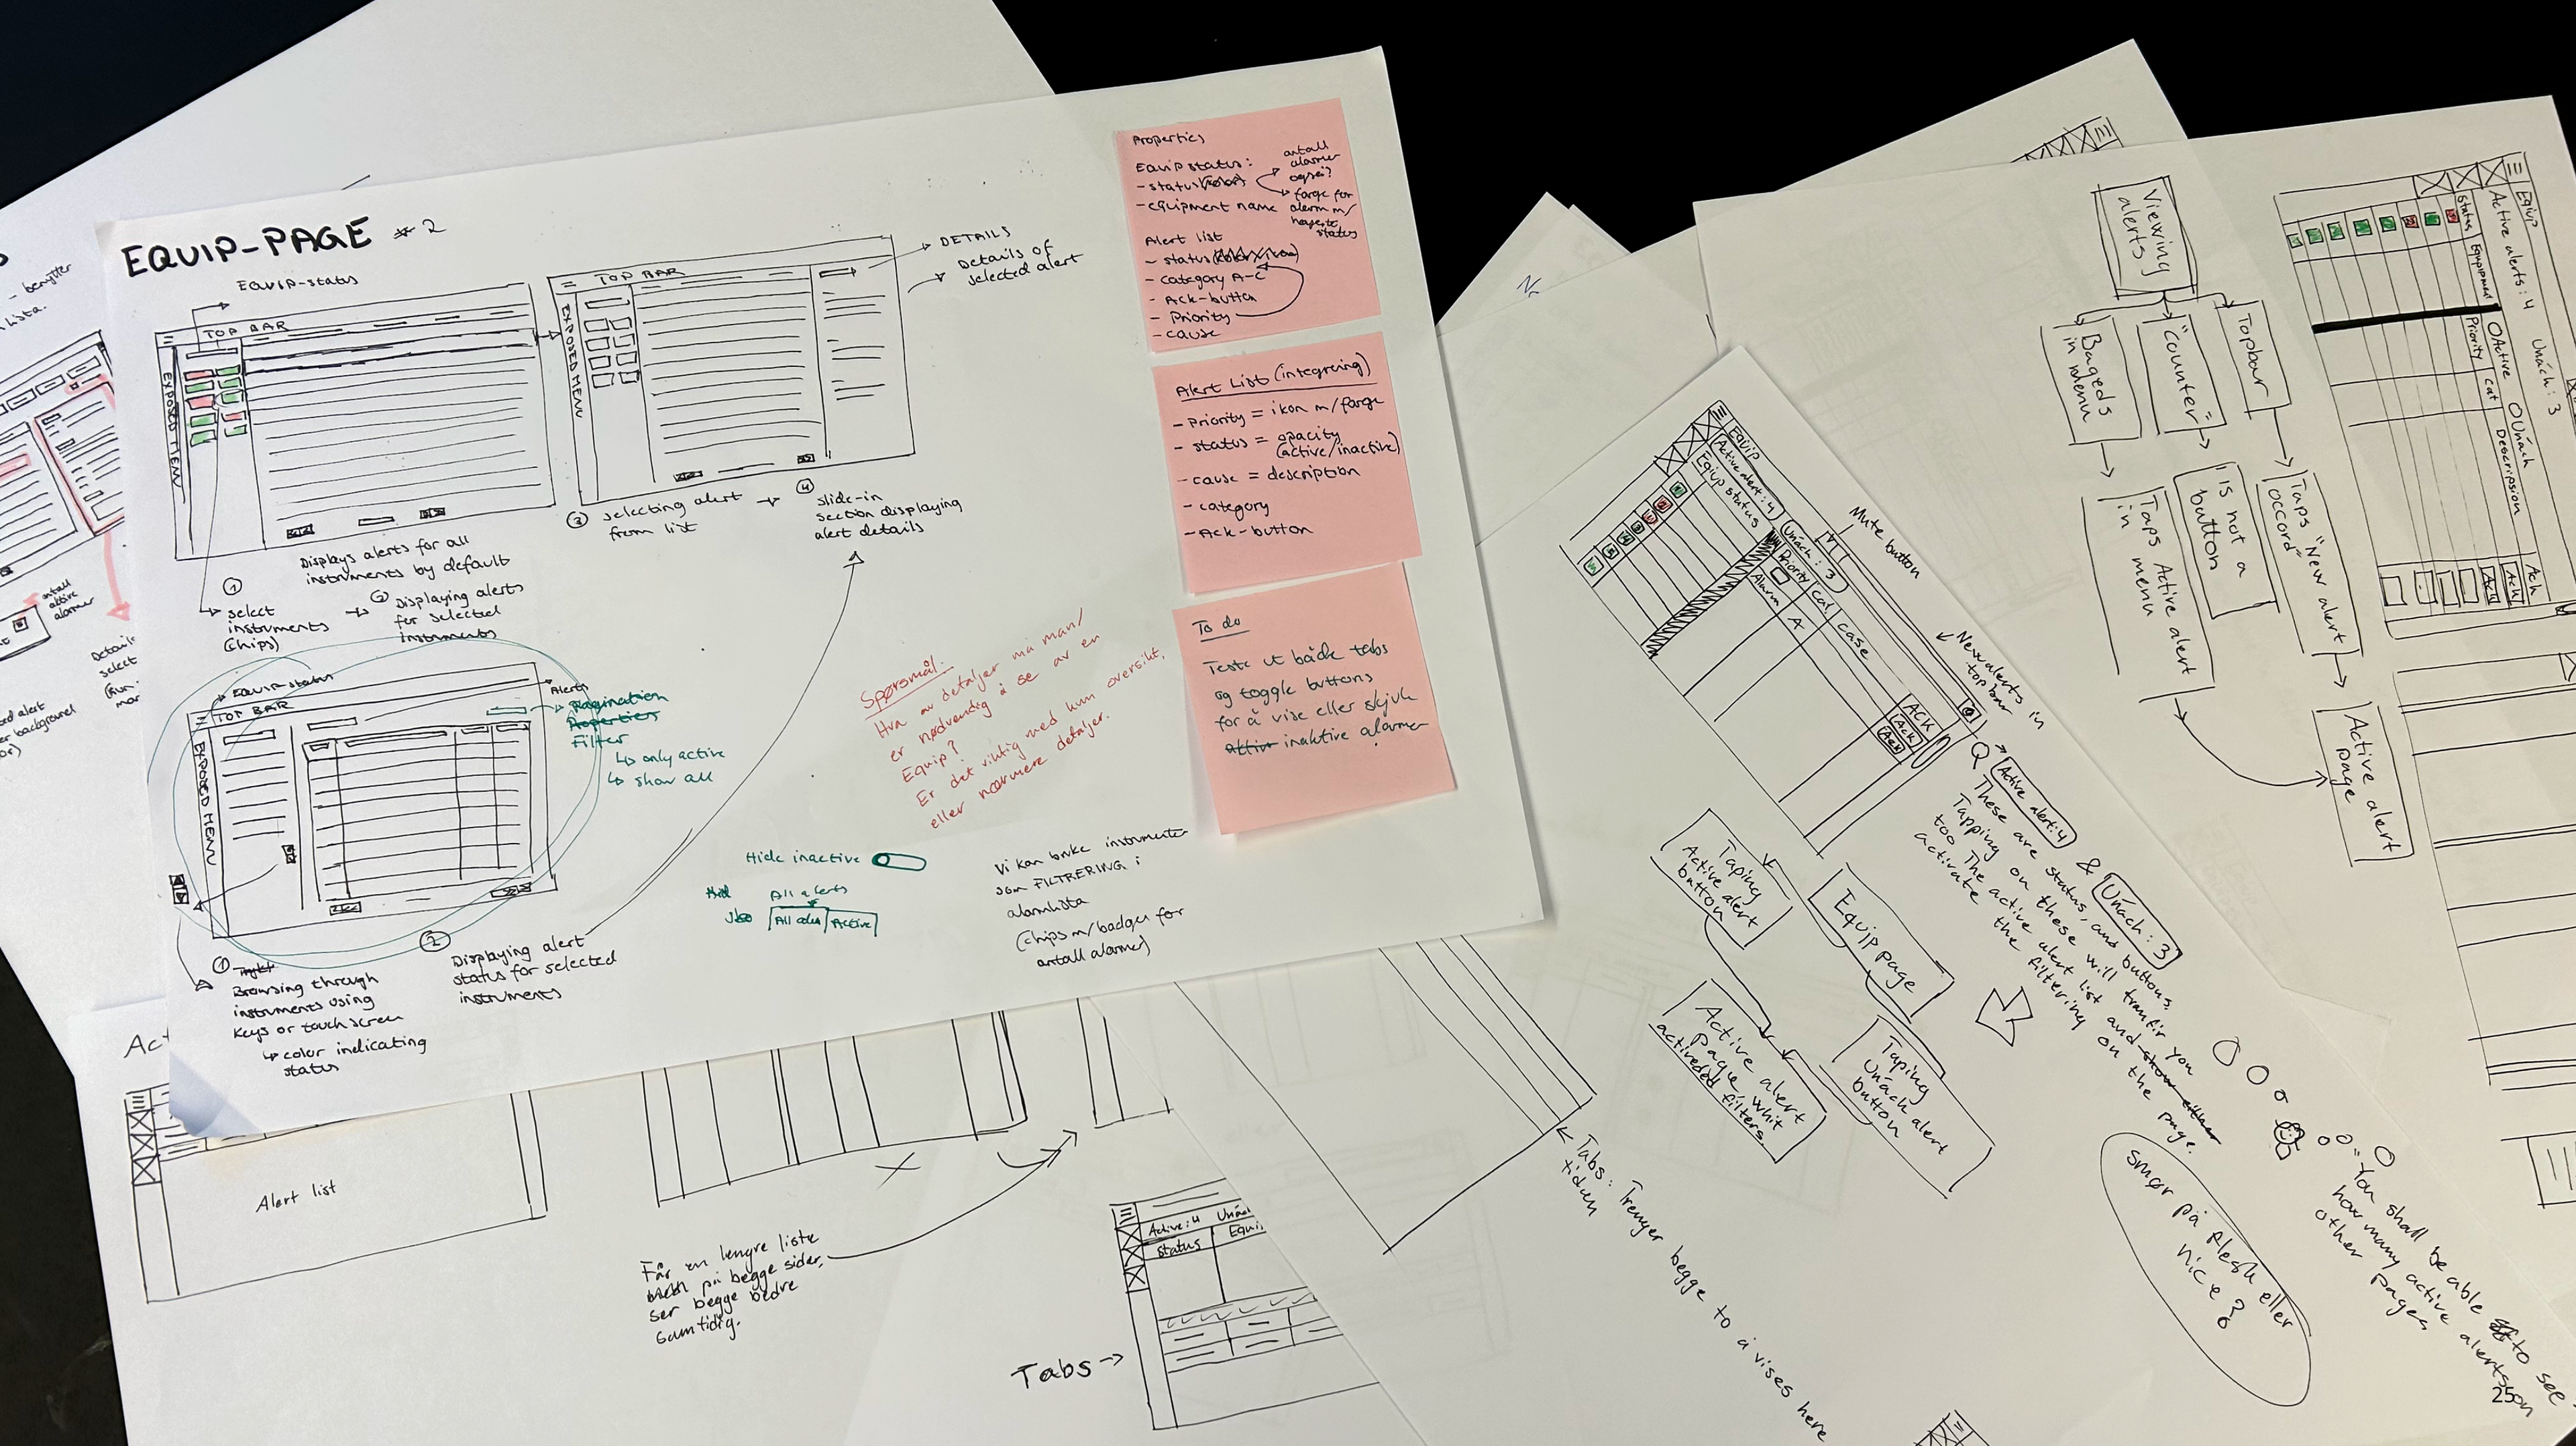 EQUIP-PAGE #2
Equip-status
TOP BAR
EXPOSED MENU
Displays alerts for all
instruments by default
①
select
instruments
(chips)
②
Displaying alerts
for selected
instruments
TOP BAR
EXPOSED MENU
DETAILS
Details of
selected alert
③ selecting alert
from list
④
slide-in
section displaying
alert details
Equip-status
TOP BAR
EXPOSED MENU
Alerts
Pagination
Properties
Filter
↳ only active
↳ show all
①
Browsing through
instruments using
Keys or touch screen
↳ color indicating
status
②
Displaying alert
status for selected
instruments
Hide inactive
All alerts
Active
Spørsmål:
Hva av detaljer må man/
er nødvendig å se av en
Equip?
Er det viktig med kun oversikt,
eller nærmere detaljer.
Vi kan bruke instrumenter
som FILTRERING i
alarmlista
(chips m/badges for
antall alarmer)
Properties
Equip status:
- status
- equipment name
antall
alarmer
også?
farge for
alarm m/
høyeste
status
Alert list
- status
- category A-C
- Ack-button
- Priority
- cause
Alert List (integrering)
- Priority = ikon m/farge
- status = opacity
(active/inactive)
- cause = description
- category
- Ack-button
To do
Teste ut både tabs
og toggle buttons
for å vise eller skjule
aktiv inaktive alarmer
- benytter
lista.
antall
aktive
alarmer
select
background
Act
Alert list
Får en lengre liste
på begge sider,
ser begge bedre
samtidig.
Tabs →
Active: 4
Status
Tabs: Trenger begge to å vises her
tiden
Equip
Active alert: 4
Unack: 3
Equip status
Priority
cat
case
ACK
Alarm
A
Ack
Ack
Mute button
New alerts in
top bar
Active alert: 4 & Unack: 3
These are status, and buttons.
Tapping on these will transfir you
too The active alert list and show either
activate the filtering on the page.
Taping
Active alert
button
Equip page
Active alert
Page, whit
activeded
filters.
Taping
Unack alert
button
smør på flesk eller
nice?
"You shall be able to see
how many active alerts on
other pages
Viewing
alerts
Topbar
"Counter"
Bageds
in menu
Taps "New alert
occord"
"is not a
button
Taps Active alert
in menu
Active alert
page
Equip
Active alerts: 4
Unack: 3
Status
Equipment
Active
Unack
Priority
cat
Descripsion
Ack
Ack
Ack
25